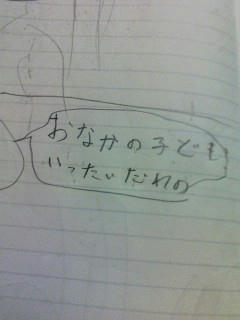 おなかの子ども
いったいだれの